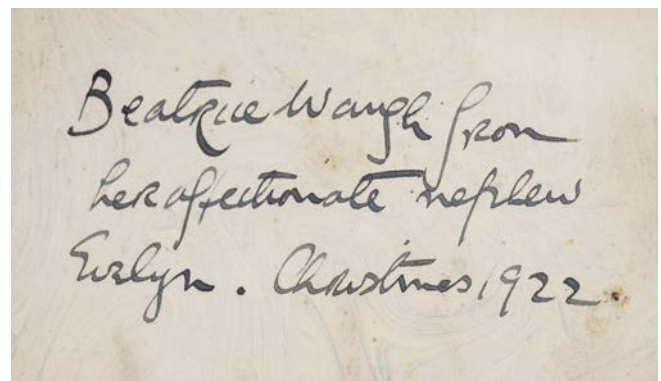 Beatrice Waugh from
her affectionate nephew
Evelyn. Christmas 1922.